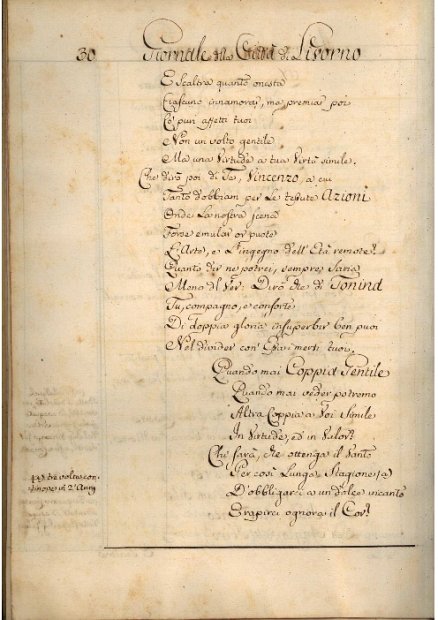 30. Giornale della Città di Livorno
E scaltra quanto onesta
Ciascuno innamorar, ma premiar poi
Co' puri affetti tuoi
Non un volto gentile
Ma una Virtude a tua Virtù simile.
Che dirò poi di Te, Vincenzo, a cui
Tanto dobbiam per le tessute Azioni
Onde la nostra scena
Forse emular or puote
L'Arte, e l'ingegno dell'Età remote?
Quanto dir ne potrei, sempre saria
Meno del Ver: Dirò che di Tonina
Tu, compagno, e conforte
Di doppia gloria insuperbir ben puoi
Nel divider con Essa i merti tuoi.
Quando mai Coppia Gentile
Quando mai veder potremo
Altra Coppia a Voi Simile
In Virtude, ed in Valor?
Chi sarà, che ottenga il Vanto
Per così Lunga Stagione (a)
D'obbligarci a un dolce incanto
E rapirci ognora il Cor?
(a) tre volte con-
 in 2 Anni